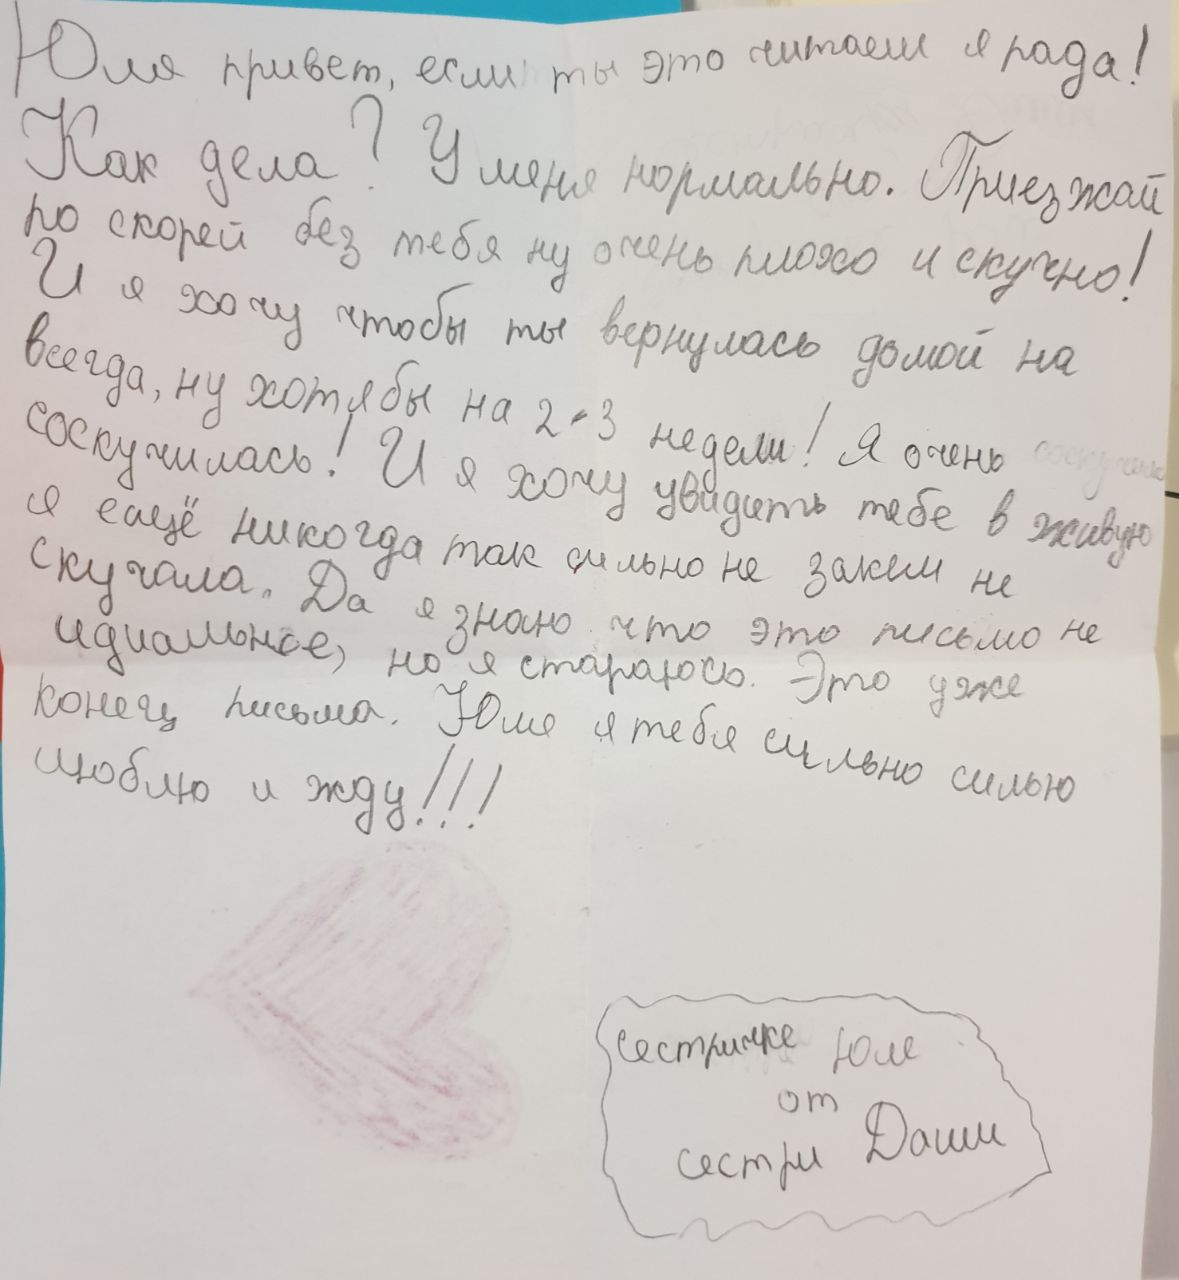 Юля привет, если ты это читаеш я рада!
Как дела? У меня нормально. Приезжай
по скорей без тебя ну очень плохо и скучно!
И я хочу чтобы ты вернулась домой на
всегда, ну хотябы на 2-3 недели! Я очень
соскучилась! И я хочу увидить тебе в живую
я ещё никогда так сильно не закем не
скучала. Да я знаю что это письмо не
идиальное, но я стараюсь. Это уже
конец письма. Юля я тебя сильно силью
люблю и жду!!!
сестричке Юле
от
сестри Даши